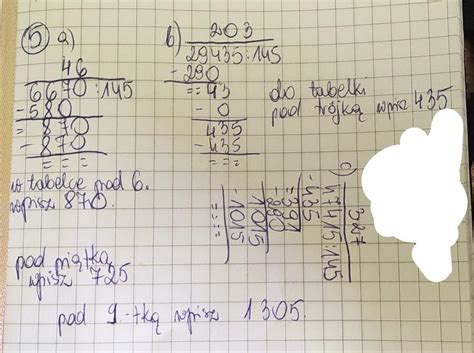 5 a)
46
6670:145
-580
= 870
- 870
= = =
w tabelce pod 6.
wpisz 870.
pod piątką
wpisz 725
pod 9-tką wpisz 1305.
b)
203
29435:145
-290
==43
- 0
435
-435
= = =
do tabelki
pod trójką wpisz 435
c)
327
47415:145
-435
=391
-290
1015
-1015
====